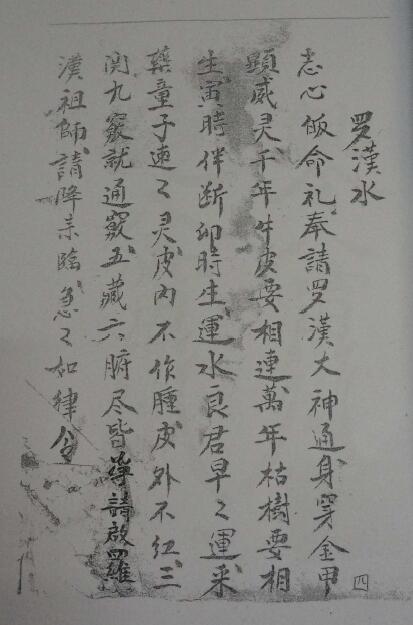 罗漢水
志心皈命礼奉請罗漢大神通身穿金甲
顕威灵千年牛皮要相連萬年枯樹要相
生寅時伴断卯時生運水良君早之運来
藥童子速之灵皮内不作腫皮外不红三
関九竅就通竅五藏六腑尽皆 請啟羅
漢祖師請降来臨急之如律令
四